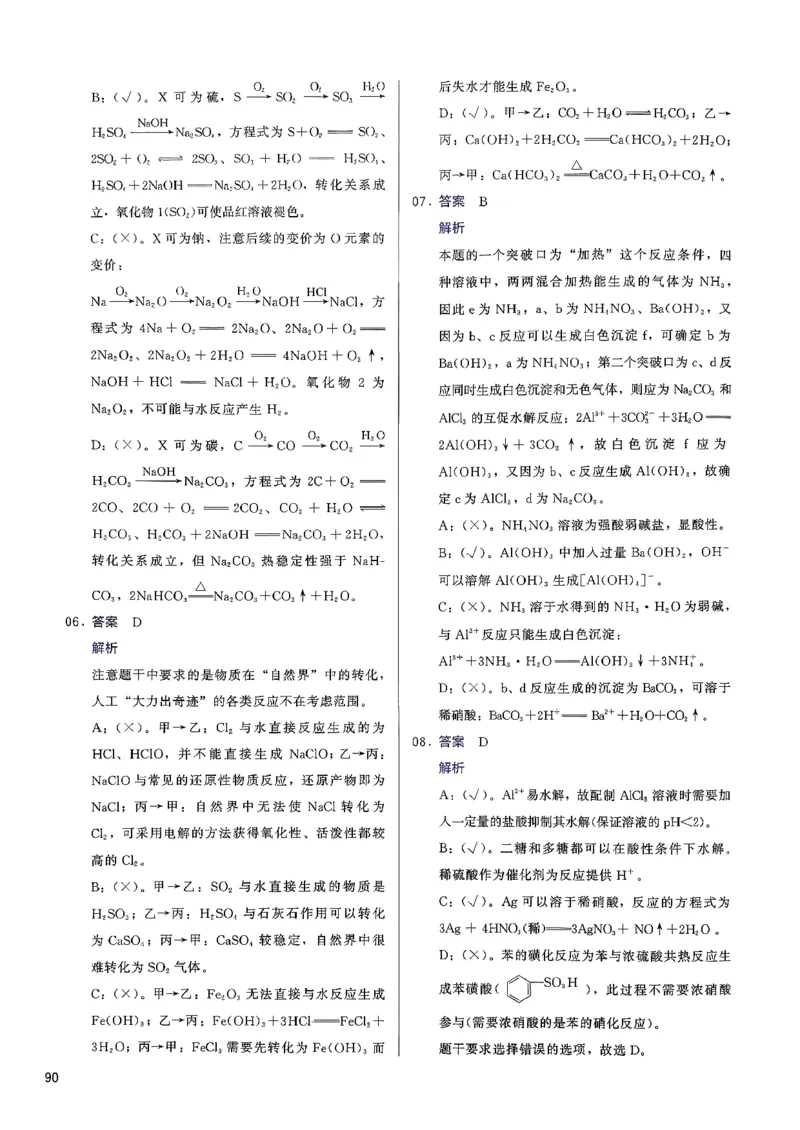 B：(√)。X 可为硫，S —O₂→ SO₂ —O₂→ SO₃ —H₂O→
H₂SO₄ —NaOH→ Na₂SO₄，方程式为 S+O₂ == SO₂、
2SO₂ + O₂ ⇌ 2SO₃、SO₃ + H₂O == H₂SO₄、
H₂SO₄+2NaOH == Na₂SO₄+2H₂O，转化关系成
立，氧化物 1(SO₂)可使品红溶液褪色。
C：(×)。X可为钠，注意后续的变价为 O 元素的
变价：
Na —O₂→ Na₂O —O₂→ Na₂O₂ —H₂O→ NaOH —HCl→ NaCl，方
程式为 4Na + O₂ == 2Na₂O、2Na₂O + O₂ ==
2Na₂O₂、2Na₂O₂ + 2H₂O == 4NaOH + O₂ ↑，
NaOH + HCl == NaCl + H₂O。氧化物 2 为
Na₂O₂，不可能与水反应产生 H₂。
D：(×)。X 可为碳，C —O₂→ CO —O₂→ CO₂ —H₂O→
H₂CO₃ —NaOH→ Na₂CO₃，方程式为 2C + O₂ ==
2CO、2CO + O₂ == 2CO₂、CO₂ + H₂O ⇌
H₂CO₃、H₂CO₃ + 2NaOH == Na₂CO₃ + 2H₂O，
转化关系成立，但 Na₂CO₃ 热稳定性强于 NaH-
CO₃，2NaHCO₃ =△= Na₂CO₃+CO₂↑+H₂O。
06. 答案 D
解析
注意题干中要求的是物质在“自然界”中的转化，
人工“大力出奇迹”的各类反应不在考虑范围。
A：(×)。甲→乙：Cl₂ 与水直接反应生成的为
HCl、HClO，并不能直接生成 NaClO；乙→丙：
NaClO 与常见的还原性物质反应，还原产物即为
NaCl；丙→甲：自然界中无法使 NaCl 转化为
Cl₂，可采用电解的方法获得氧化性、活泼性都较
高的 Cl₂。
B：(×)。甲→乙：SO₂ 与水直接生成的物质是
H₂SO₃；乙→丙：H₂SO₄ 与石灰石作用可以转化
为 CaSO₄；丙→甲：CaSO₄ 较稳定，自然界中很
难转化为 SO₂ 气体。
C：(×)。甲→乙：Fe₂O₃ 无法直接与水反应生成
Fe(OH)₃；乙→丙：Fe(OH)₃+3HCl == FeCl₃+
3H₂O；丙→甲：FeCl₃ 需要先转化为 Fe(OH)₃ 而
后失水才能生成 Fe₂O₃。
D：(√)。甲→乙：CO₂+H₂O ⇌ H₂CO₃；乙→
丙：Ca(OH)₂+2H₂CO₃ == Ca(HCO₃)₂+2H₂O；
丙→甲：Ca(HCO₃)₂ =△= CaCO₃+H₂O+CO₂↑。
07. 答案 B
解析
本题的一个突破口为“加热”这个反应条件，四
种溶液中，两两混合加热能生成的气体为 NH₃，
因此 e 为 NH₃，a、b 为 NH₄NO₃、Ba(OH)₂，又
因为 b、c 反应可以生成白色沉淀 f，可确定 b 为
Ba(OH)₂，a 为 NH₄NO₃；第二个突破口为 c、d 反
应同时生成白色沉淀和无色气体，则应为 Na₂CO₃ 和
AlCl₃ 的互促水解反应：2Al³⁺+3CO₃²⁻+3H₂O ==
2Al(OH)₃↓ + 3CO₂ ↑，故白色沉淀 f 应为
Al(OH)₃，又因为 b、c 反应生成 Al(OH)₃，故确
定 c 为 AlCl₃，d 为 Na₂CO₃。
A：(×)。NH₄NO₃ 溶液为强酸弱碱盐，显酸性。
B：(√)。Al(OH)₃ 中加入过量 Ba(OH)₂，OH⁻
可以溶解 Al(OH)₃ 生成[Al(OH)₄]⁻。
C：(×)。NH₃ 溶于水得到的 NH₃·H₂O 为弱碱，
与 Al³⁺反应只能生成白色沉淀：
Al³⁺+3NH₃·H₂O == Al(OH)₃↓+3NH₄⁺。
D：(×)。b、d 反应生成的沉淀为 BaCO₃，可溶于
稀硝酸：BaCO₃+2H⁺ == Ba²⁺+H₂O+CO₂↑。
08. 答案 D
解析
A：(√)。Al³⁺易水解，故配制 AlCl₃ 溶液时需要加
入一定量的盐酸抑制其水解(保证溶液的 pH<2)。
B：(√)。二糖和多糖都可以在酸性条件下水解。
稀硫酸作为催化剂为反应提供 H⁺。
C：(√)。Ag 可以溶于稀硝酸，反应的方程式为
3Ag + 4HNO₃(稀) == 3AgNO₃+ NO↑+2H₂O。
D：(×)。苯的磺化反应为苯与浓硫酸共热反应生
成苯磺酸( —SO₃H )，此过程不需要浓硝酸
参与(需要浓硝酸的是苯的硝化反应)。
题干要求选择错误的选项，故选 D。
90